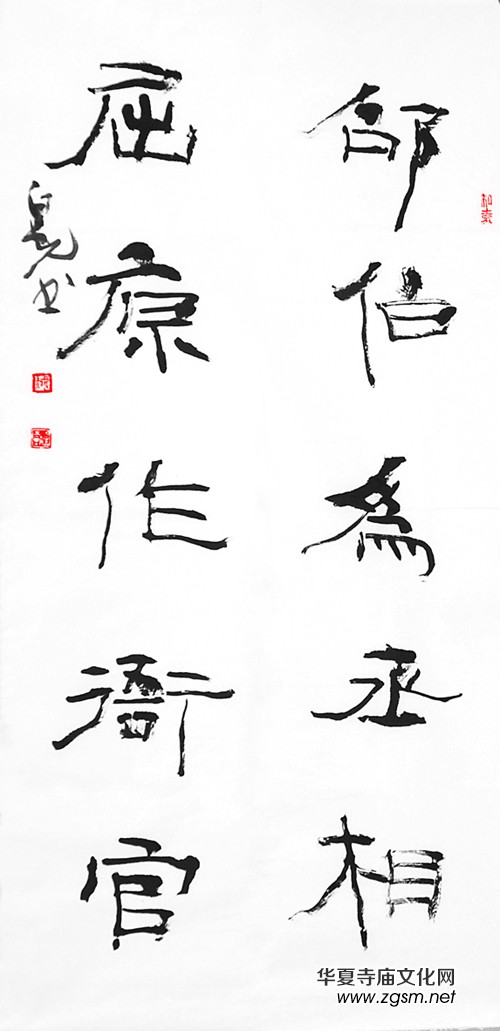 伯為丞相
屈原作衙官
书
华夏寺庙文化网
www.zgsm.net